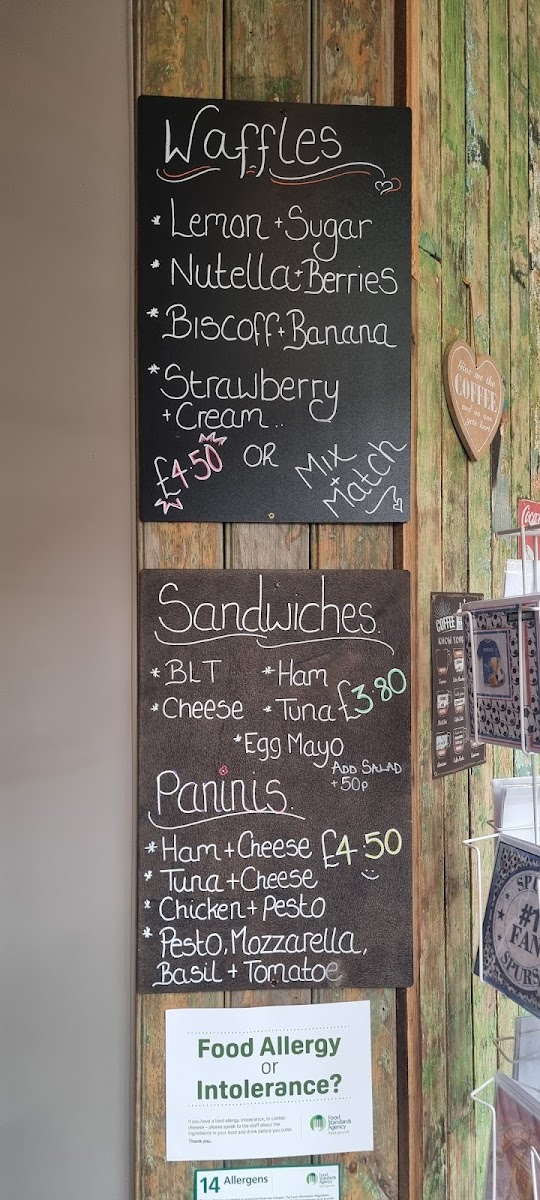 Waffles
* Lemon + Sugar
* Nutella + Berries
* Biscoff + Banana
* Strawberry
+ Cream..
£4.50 OR Mix + Match
Give me the
COFFEE
and no one
gets hurt
Sandwiches.
* BLT * Ham
* Cheese * Tuna £3.80
* Egg Mayo
ADD SALAD
+ 50p
Paninis.
* Ham + Cheese £4.50
* Tuna + Cheese
* Chicken + Pesto
* Pesto, Mozzarella,
Basil + Tomatoe
COFFEE
#1
FAN
SPURS
Food Allergy
or
Intolerance?
If you have a food allergy, intolerance, or coeliac
disease – please speak to the staff about the
ingredients in your food and drink before you order.
Thank you.
Food
Standards
Agency
14 Allergens
Food
Standards
Agency